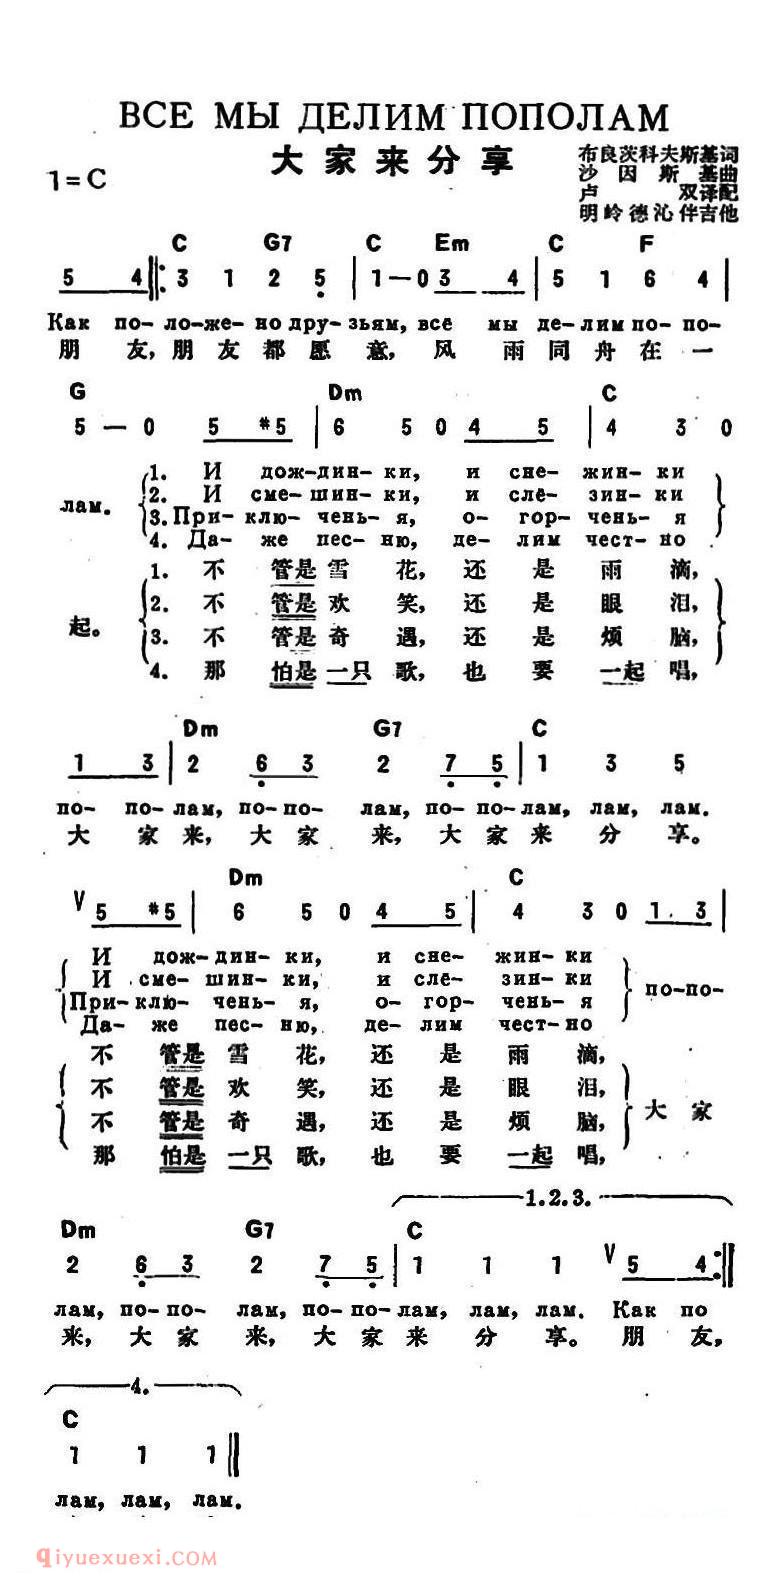 ВСЕ МЫ ДЕЛИМ ПОПОЛАМ
大家来分享
1=C
布良茨科夫斯基词
沙因斯基曲
卢双译配
明岭德沁伴吉他
C G7 C Em C F
5 4 3 1 2 5 1—0 3 4 5 1 6 4
Как по- ло-же-но дру-зьям, все мы де-лим по-по-
朋 友, 朋 友 都 愿 意, 风 雨 同 舟 在 一
G Dm C
5 — 0 5 #5 6 5 0 4 5 4 3 0
лам.
1. И дож-дин-ки, и сне-жин-ки
2. И сме-шин-ки, и слё-зин-ки
3. При-клю-чень-я, о-гор-чень-я
4. Да-же пес-ню, де-лим чест-но
起。
1. 不 管是 雪 花, 还 是 雨 滴,
2. 不 管是 欢 笑, 还 是 眼 泪,
3. 不 管是 奇 遇, 还 是 烦 脑,
4. 那 怕是 一只 歌, 也 要 一起 唱,
Dm G7 C
1 3 2 6 3 2 7 5 1 3 5
по- по-лам, по-по- лам, по-по-лам, лам, лам.
大 家 来, 大 家 来, 大 家 来 分 享。
Dm C
V 5 #5 6 5 0 4 5 4 3 0 1. 3
И дож-дин-ки, и сне-жин-ки
И сме-шин-ки, и слё-зин-ки
При-клю-чень-я, о-гор-чень-я
Да-же пес-ню, де-лим чест-но
по-по-
不 管是 雪 花, 还 是 雨 滴,
不 管是 欢 笑, 还 是 眼 泪,
不 管是 奇 遇, 还 是 烦 脑,
那 怕是 一只 歌, 也 要 一起 唱,
大 家
1.2.3.
Dm G7 C
2 6 3 2 7 5 1 1 1 V 5 4
лам, по-по- лам, по-по-лам, лам, лам. Как по
来, 大 家 来, 大 家 来 分 享。 朋 友,
4.
C
1 1 1
лам, лам, лам.
qiyuexuexi.COM